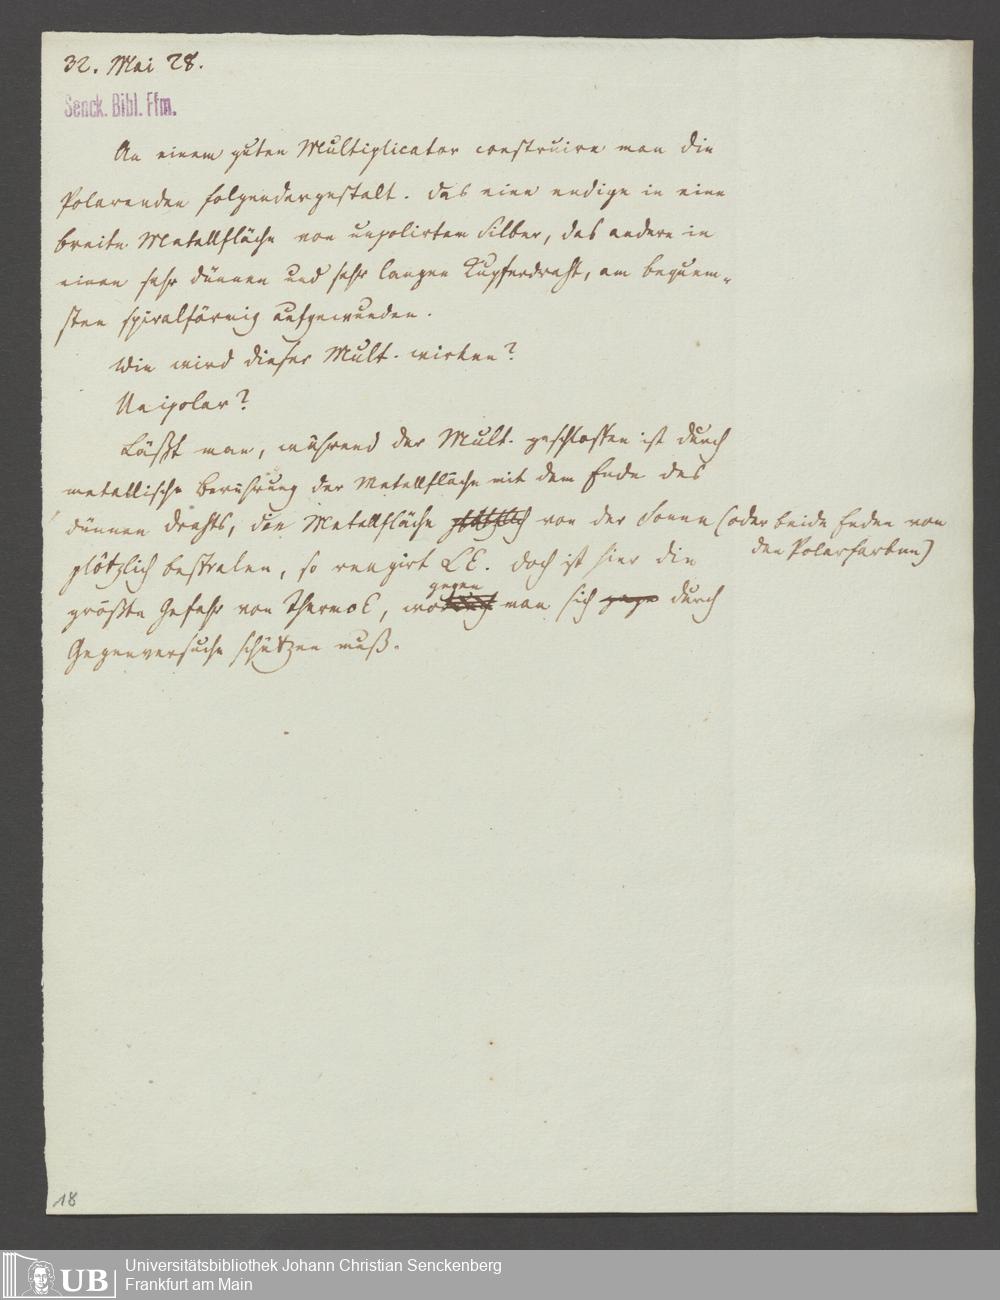 32. Mai 28.
Senck. Bibl. Ffm.
An einem guten Multiplicator construire man die
Polarenden folgendergestalt. Das eine endige in eine
breite Metallfläche von unpolirtem Silber, das andere in
einen sehr dünnen und sehr langen Kupferdraht, am bequem-
sten spiralförmig aufgewunden.
Wie wird dieser Mult. wirken?
Unipolar?
Läßt man, während der Mult. geschlossen ist durch
metallische Berührung der Metallfläche mit dem Ende des
dünnen Drahts, die Metallfläche plötzlich von der Sonne (oder beide Enden von
den Polarfarben)
plötzlich bestralen, so reagirt LE. Doch ist hier die
gegen
größte Gefahr von ThermoE, wo man sich gege durch
Gegenversuche schützen muß.
18
UB
Universitätsbibliothek Johann Christian Senckenberg
Frankfurt am Main